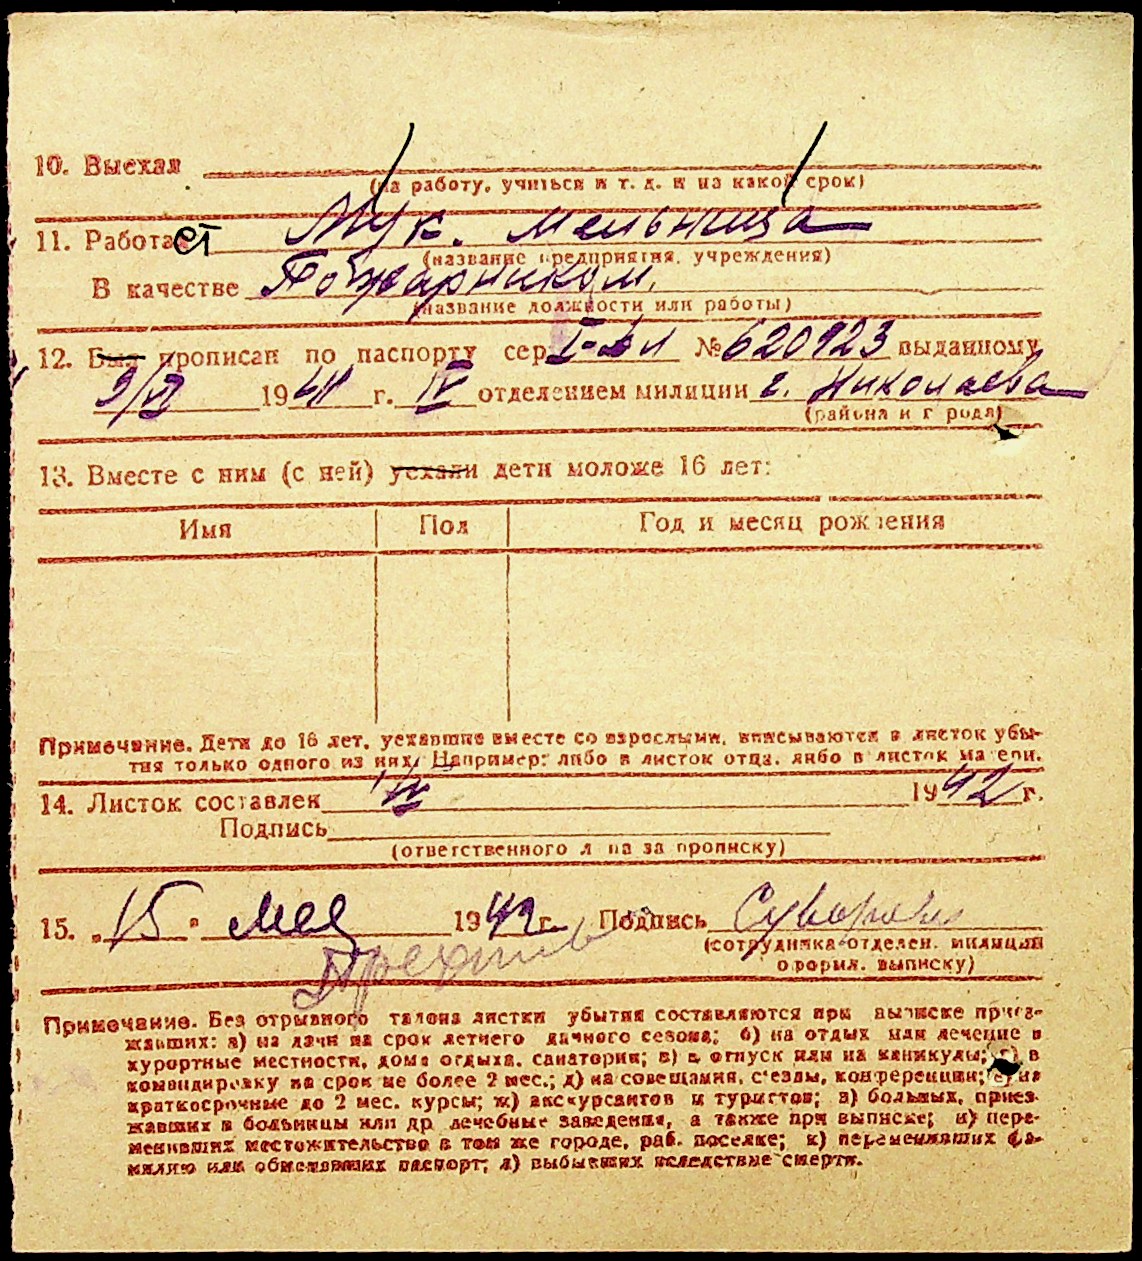 10. Выехал
(на работу, учиться и т. д. и на какой срок)
11. Работает Мук. мельница
(название предприятия, учреждения)
В качестве Пожарником.
(название должности или работы)
12. Был прописан по паспорту сер. № 620923 выданному
1941 г. IV отделением милиции г. Николаева
(района и города)
13. Вместе с ним (с ней) уехали дети моложе 16 лет:
Имя Пол Год и месяц рождения
Примечание. Дети до 16 лет, уехавшие вместе со взрослыми, вписываются в листок убы-
тия только одного из них. Например: либо в листок отца, либо в листок матери.
14. Листок составлен 1942 г.
Подпись
(ответственного лица за прописку)
15. „15" мая 1942 г. Подпись
(сотрудника отделен. милиции
оформл. выписку)
Примечание. Без отрывного талона листки убытия составляются при выписке приез-
жавших: а) на дачи на срок летнего дачного сезона; б) на отдых или лечение в
курортные местности, дома отдыха, санатории; в) в отпуск или на каникулы; г) в
командировку на срок не более 2 мес.; д) на совещания, с'езды, конференции; е) на
краткосрочные до 2 мес. курсы; ж) экскурсантов и туристов; з) больных, приез-
жавших в больницы или др. лечебные заведения, а также при выписке; и) пере-
менивших местожительство в том же городе, раб. поселке; к) переменивших фа-
милию или обменявших паспорт; л) выбывших вследствие смерти.